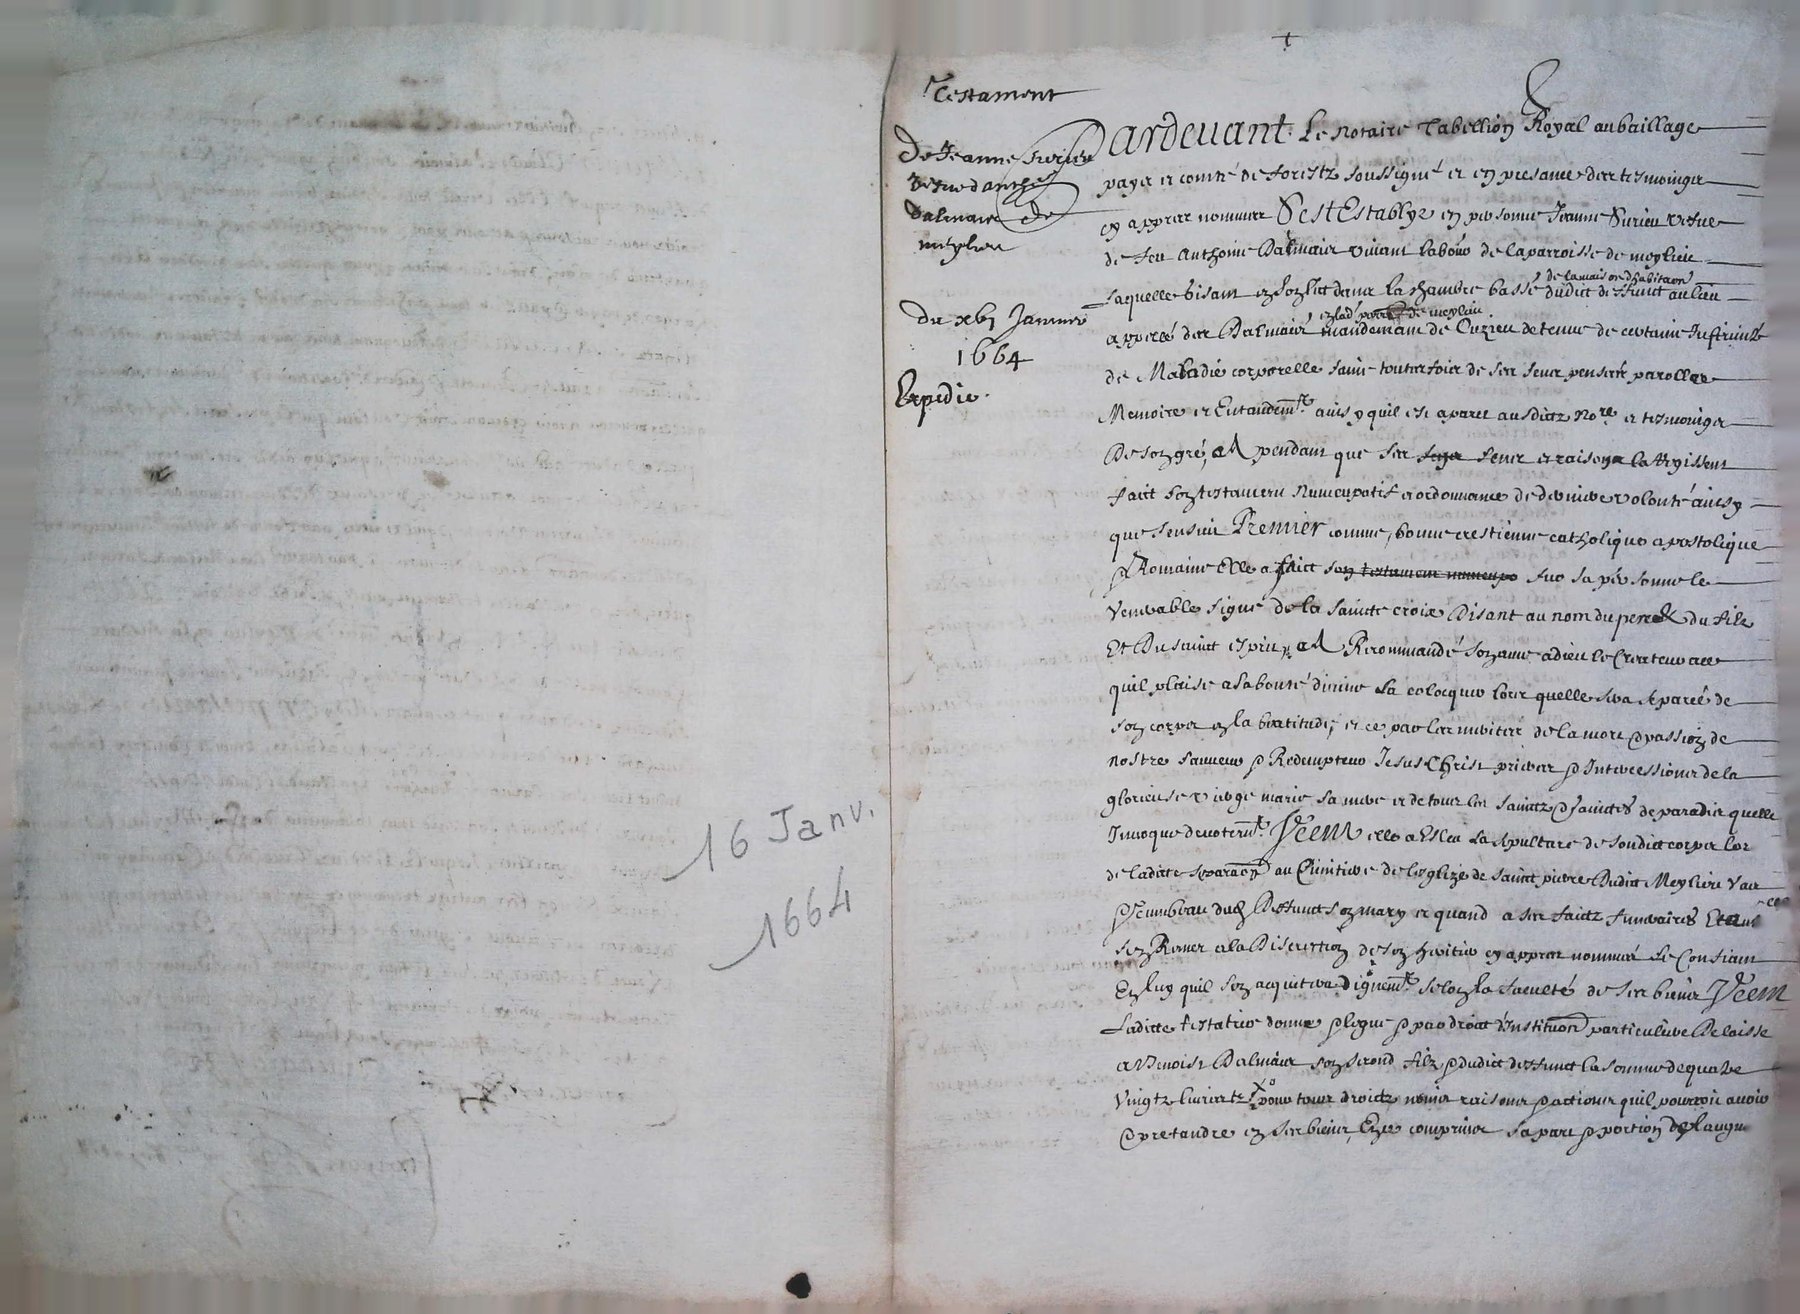 16 Janv.
1664
Testament
De Jeanne Surieu
vefue d'anthe
Dalmais de
meylieu
du xbj Janvier
1664
Expedie.
Pardevant Le Notaire Tabellion Royal au baillage
payes et comté de forestz soussigné et en presance des tesmoingz
cy appres nommes S'est Establye en personne Jeanne Surieu vefue
de feu Anthoine Dalmais vivant labour de la parroisse de meylieu
Laquelle gisant en son lict dans la chambre basse de la maison d'habitaon dudict deffunct au lieu
appellé des Dalmais en lad parr de meylieu mandemant de Cuzieu detenue de certaine Infirmité
de Maladie corporelle saine toutesfois de ses sens pensées parolles
Memoire et Entandemt ainsy quil est aparu ausdictz Nore et tesmoingz
De son gré, et pendant que ses sens et raison la Regissent
faict son testament Nuncupatif et ordonnance de derniere volonté ainsy
que sensuit Premier comme bonne crestienne catholique apostolique
& Romaine Elle a faict son testament nuncupa sur sa personne le
Venerable signe de la saincte croix Disant au nom du pere & du filz
Et Du sainct esprit, et Recommandé son ame a dieu le Createur a ce
quil plaise a sa bonté divine La colocquer lors quelle sera separée de
son corps en la beatitude, et ce par les merites de la mort & passion de
nostre sauveur & Redempteur Jesus Christ prieres & Intercessions de la
glorieuse vierge marie sa mere et de tous les sainctz & sainctes de paradis quelle
Invoque devotemt. Item elle a Esleu La sepulture de sondict corps lors
de ladicte separaon au Cimitiere de l'esglize de sainct pierre Dudict Meylieu Vas
& Tumbeau dud Deffunct son mary et quand a ses faictz funeraires Et aut
s'en Remet a la Discretion de son heritier cy appres nommé Se Confiant
En luy quil s'en acquitera dignemt. selon la faculté de ses biens Item
Ladicte testatrice donne & legue & par droict d'Instituon particuliere Delaisse
a Benoist Dalmais son second filz & dudict deffunct la somme de quatre
Vingtz livres tz pour tous droictz noms raisons & actions quil pourroit avoir
& pretandre en ses biens, En ce comprins sa part & portion de l'augm